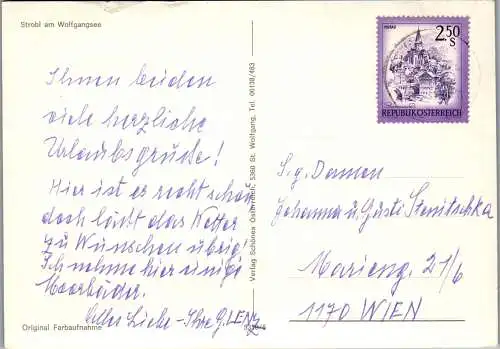 Strobl am Wolfgangsee
Ihnen beiden
viele herzliche
Urlaubsgrüße!
Hier ist es recht schön
doch läßt das Wetter
zu Wünschen übrig
Ich nehme hier einige
Moorbäder.
Alles Liebe - Ihre G. LENZ
Original Farbaufnahme
Verlag schönes Österreich, 5360 St. Wolfgang, Tel. 06138/483
2.50
S
MURAU
REPUBLIK ÖSTERREICH
S.g. Damen
Johanna u. Gusti Stanitschka
Marieng. 21/6
1170 WIEN